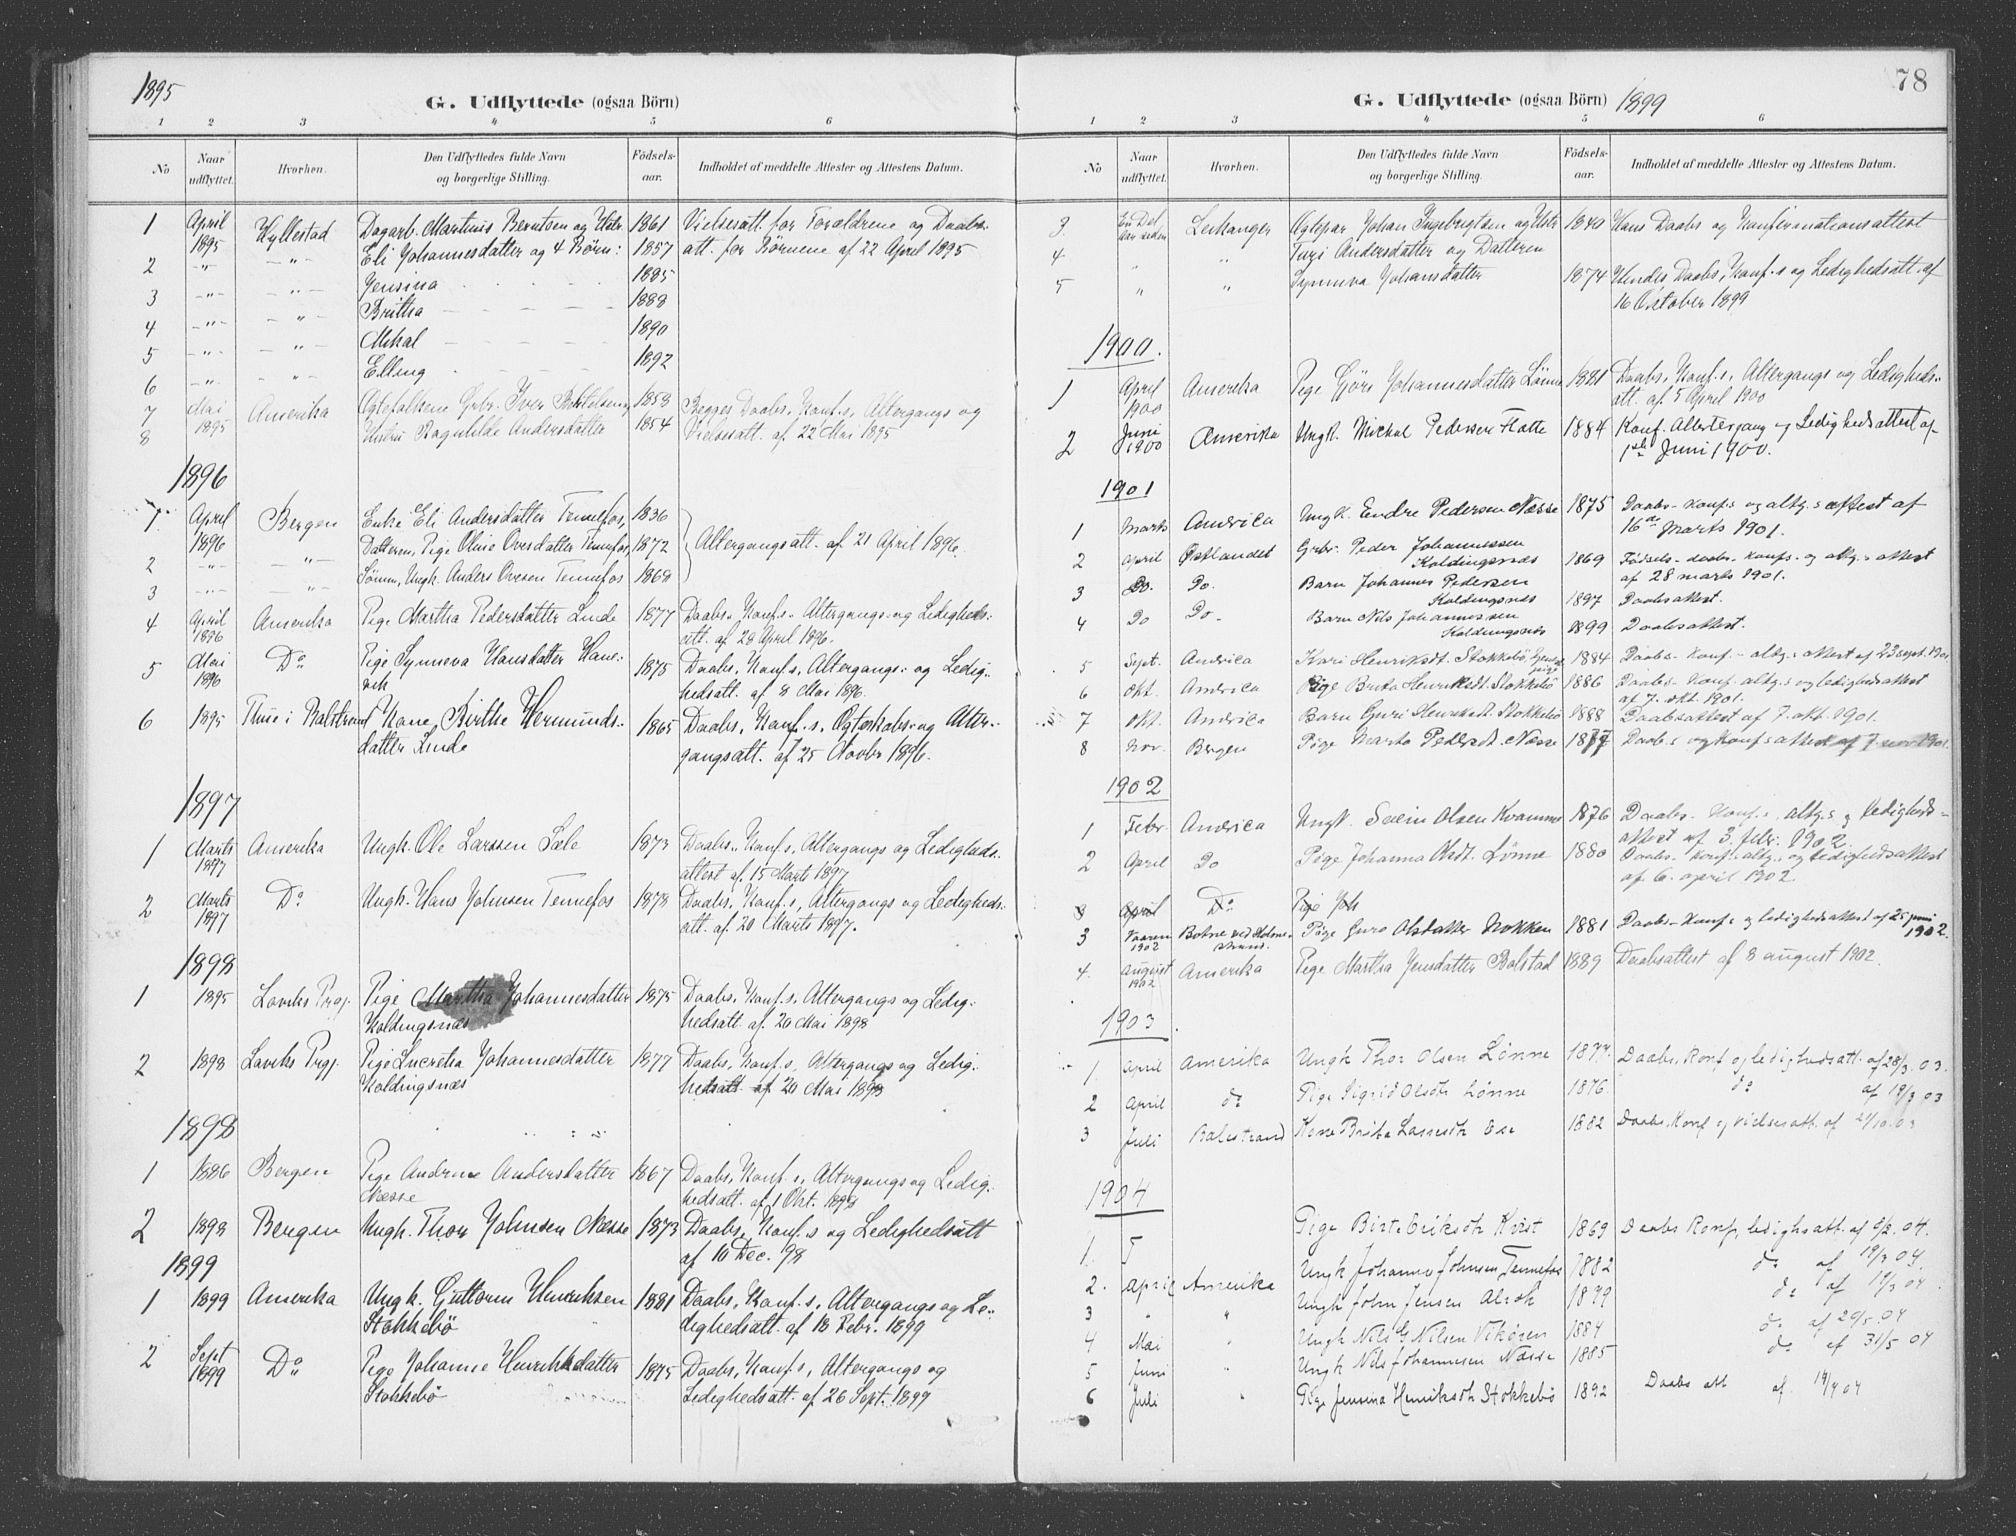 1895
G. Udflyttede (ogsaa Börn)
1 2 3 4 5 6
No Naar udflyttet. Hvorhen. Den Udflyttedes fulde Navn og borgerlige Stilling. Födsels-aar. Indholdet af meddelte Attester og Attestens Datum.
1 April 1895 Hyllestad Dagarb. Marthius Berntsen og Hstr. 1861 Vielsesatt. for Forældrene og Daabs-
2 -"- -"- Eli Johannesdatter og 4 Børn: 1857 att. for Børnene af 22 April 1895
3 -"- -"- Jensina 1885
4 -"- -"- Britha 1888
5 -"- -"- Mikal 1890
6 -"- -"- Elling 1892
7 Mai 1895 Amerika Ægtefolkene Grbr. Iver 1858 Begges Daabs, Konf.s, Altergangs og
8 Hustru Bagnhilde Andersdatter 1854 Vielsesatt. af 22 Mai 1895
1896
1 April 1896 Bergen Enke Eli Andersdatter Tennefos, 1836
2 -"- -"- Datteren, Pige Oline Ovesdatter Tennefos, 1872 Altergangsatt. af 21 April 1896.
3 -"- -"- Sönnen, Ungk. Anders Ovesen Tennefos 1868
4 April 1896 Amerika Pige Martha Pedersdatter Linde 1877 Daabs, Konf.s, Altergangs og Ledigheds-
att. af 20 April 1896.
5 Mai 1896 Do Pige Synneva Hansdatter Hane- 1875 Daabs, Konf.s, Altergangs- og Ledig-
vik hedsatt. af 8 Mai 1896.
6 1895 Thue i Balstrand Kone, Birthe Hermunds- 1865 Daabs, Konf.s, Ægteskabs- og Alter-
datter Linde gangsatt. af 25 Novbr 1896.
1897
1 Marts 1897 Amerika Ungk. Ole Larssen Sæle 1873 Daabs, Konf.s, Altergangs og Ledigheds-
attest af 15 Marts 1897
2 Marts 1897 Do Ungk. Hans Johnsen Tennefos 1878 Daabs, Konf.s, Altergangs og Ledigheds-
att. af 20 Marts 1897.
1898
1 1895 Laviks Prgj. Pige Martha Johannesdatter 1875 Daabs, Konf.s, Altergangs og Ledig-
Koldingsnæs hedsatt. af 20 Mai 1898
2 1898 Laviks Prgj. Pige Lucretia Johannesdatter 1877 Daabs, Konf.s, Altergangs og Ledig-
Koldingsnæs hedsatt. af 20 Mai 1898
1898
1 1886 Bergen Pige Andrine Andersdatter 1867 Daabs, Konf.s, Altergangs og Ledig-
Næsse hedsatt. af 1 Okt. 1898
2 1898 Bergen Ungk. Thor Johnsen Næsse 1873 Daabs, Konf.s og Ledighedsatt
af 10 Dec. 98
1899
1 1899 Amerika Ungk. Guttorm Henriksen 1881 Daabs, Konf.s, Altergangs og Le-
Stokkebö dighedsatt. af 18 Febr. 1899
2 Sept 1899 Do Pige Johanne Henrikkdatter 1875 Daabs, Konf.s, Altergangs og
Stokkebö Ledighedsatt. af 26 Sept. 1899
78
G. Udflyttede (ogsaa Börn) 1899
1 2 3 4 5 6
No Naar udflyttet. Hvorhen. Den Udflyttedes fulde Navn og borgerlige Stilling. Födsels-aar. Indholdet af meddelte Attester og Attestens Datum.
3 En Del Aar siden Leikanger Ægtepar Johan Ingebrigtsen og Hstr 1840 Hans Daabs og Konfirmationsattest
4 " " Turi Andersdatter og Datteren
5 " " Synneva Johansdatter 1874 Hendes Daabs, Konf.s og Ledighedsatt. af
16 October 1899
1900.
1 April 1900 Amerika Pige Gjöri Johannesdatter Lönne 1881 Daabs, Konf.s, Altergangs og Ledigheds-
att. af 5 April 1900
2 Juni 1900 Amerika Ungk. Michal Pedersen Flatte 1884 Konf. Altergang og Ledighedsattest af
1ste Juni 1900.
1901
1 Marts America Ungk. Endre Pedersen Næsse 1875 Daabs- konf.s og altg.s attest af
16de Marts 1901.
2 April Østlandet Grbr. Peder Johannessen
Koldingsnæs 1869 Fødsels- daabs- konfs.- og altg.s attest
af 28 marts 1901.
3 Do. Do. Barn Johannes Pedersen
Koldingsnæs 1897 Daabsattest.
4 Do Do. Barn Nils Johannessen
Koldingsnæs 1899 Daabsattest.
5 Sept. America Kari Henriksdt. Stokkebö 1884 Daabs- konf- altg.s attest af 23 sept. 1901
6 Okt. America Pige Brita Henriksdt. Stokkebö 1886 Daabs- konf. altg.s og ledighedsattest
af 7. okt. 1901.
7 Okt. America Barn Guri Henriksdt. Stokkebö 1888 Daabsattest af 7. okt. 1901.
8 Nov. Bergen Pige Marta Pedersdt. Næsse 1877 Daabs og Konfs attest af 7 nov 1901.
1902
1 Febr. America Ungk. Svein Olsen Kvamme 1876 Daabs- Konf.s, altg.s og ledigheds-
attest af 3. febr. 1902.
2 April Do Pige Johanna Olsdt. Lönne 1880 Daabs- konf- altg.s og ledighedsattest
af 6. april 1902.
3 April Do Pige Joh
3 Vaaren 1902 Botne ved Holme-strand. Pige Guro Olsdatter Nokken 1881 Daabs- Konf.s og ledighedsattest af 25 juni
1902.
4. august 1902 Amerika Pige Martha Jensdatter Bolstad 1889 Daabsattest af 8 august 1902.
1903.
1 April Amerika Ungk Thor Olsen Lönne 1877. Daabs, konf og ledighedsatt. af 28/3. 03.
2 April do Pige Sigrid Olsdtr Lönne 1876 do af 19/3 03
3 Juli Balestrand Kone Brita Lassesdtr Ese 1882 Daabs, Konf og vielsesatt. af 21/10.03
1904
1. 5 Pige Birte Eriksdtr Kvist 1869 Daabs Konf, ledighsatt. af 5/2. 04.
2. April Amerika Ungk Johannes Johnsen Tennefos 1882 do af 19/3 04.
3 " " Ungk John Jensen 1879 do af 19/3 04
4 Mai " Ungk Nils G Nilsen Vikören 1884 do af 29/5. 04
5 Juni " Ungk Nils Johannesen Næsse 1885 do af 31/5 04
6 Juli " Pige Jensina Henriksdtr Stokkebö 1892 Daabs att af 14/7 04